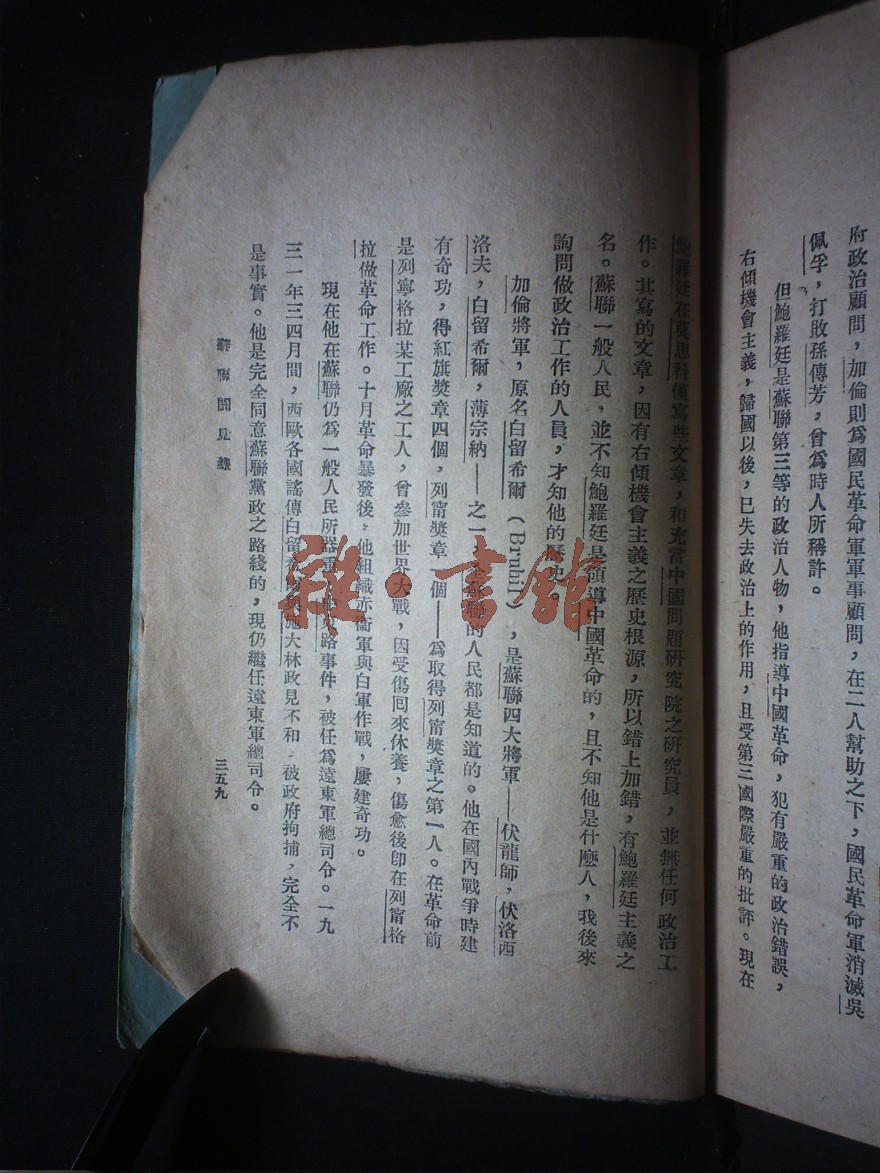 府政治顧問，加倫則為國民革命軍軍事顧問，在二人幫助之下，國民革命軍消滅吳
佩孚，打敗孫傳芳，曾為時人所稱許。
但鮑羅廷是蘇聯第三等的政治人物，他指導中國革命，犯有嚴重的政治錯誤，
右傾機會主義，歸國以後，已失去政治上的作用，且受第三國際嚴重的批評。現在
鮑羅廷在莫思科僅寫些文章，和充當中國問題研究院之研究員，並無任何政治工
作。其寫的文章，因有右傾機會主義之歷史根源，所以錯上加錯，有鮑羅廷主義之
名。蘇聯一般人民，並不知鮑羅廷是領導中國革命的，且不知他是什麼人，我後來
詢問做政治工作的人員，才知他的歷史。
加倫將軍，原名白留希爾（Bruhil），是蘇聯四大將軍——伏龍師，伏洛西
洛夫，白留希爾，薄宗納——之一，全蘇聯的人民都是知道的。他在國內戰爭時建
有奇功，得紅旗獎章四個，列甯獎章一個——為取得列甯獎章之第一人。在革命前
是列寧格拉某工廠之工人，曾參加世界大戰，因受傷囘來休養，傷愈後卽在列甯格
拉做革命工作。十月革命暴發後，他組織赤衞軍與白軍作戰，屢建奇功。
現在他在蘇聯仍為一般人民所器重，中東路事件，被任為遠東軍總司令。一九
三一年三四月間，西歐各國謠傳白留希爾與施大林政見不和，被政府拘捕，完全不
是事實。他是完全同意蘇聯黨政之路綫的，現仍繼任遠東軍總司令。
蘇聯聞見錄
三五九
雜·書館